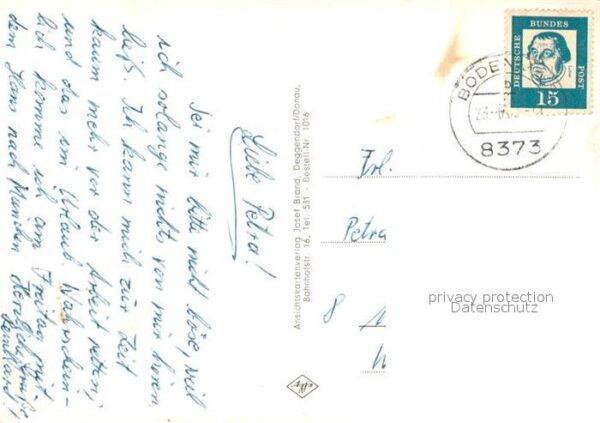 Liebe Petra!
Sei mir bitte nicht böse, weil
ich solange nichts von mir hören
ließ. Ich kann mich zur Zeit
kaum mehr vor der Arbeit retten,
und das im Urlaub. Wahrschein-
lich komme ich am Freitag mit
dem Hans nach München.
Ansichtskartenverlag Josef Brand, Deggendorf/Donau,
Bahnhofstr. 16, Tel. 531 Bestell-Nr. 1016
Agfa
DEUTSCHE
BUNDES
POST
15
BODEN
8373
Frl.
Petra
8
privacy protection
Datenschutz